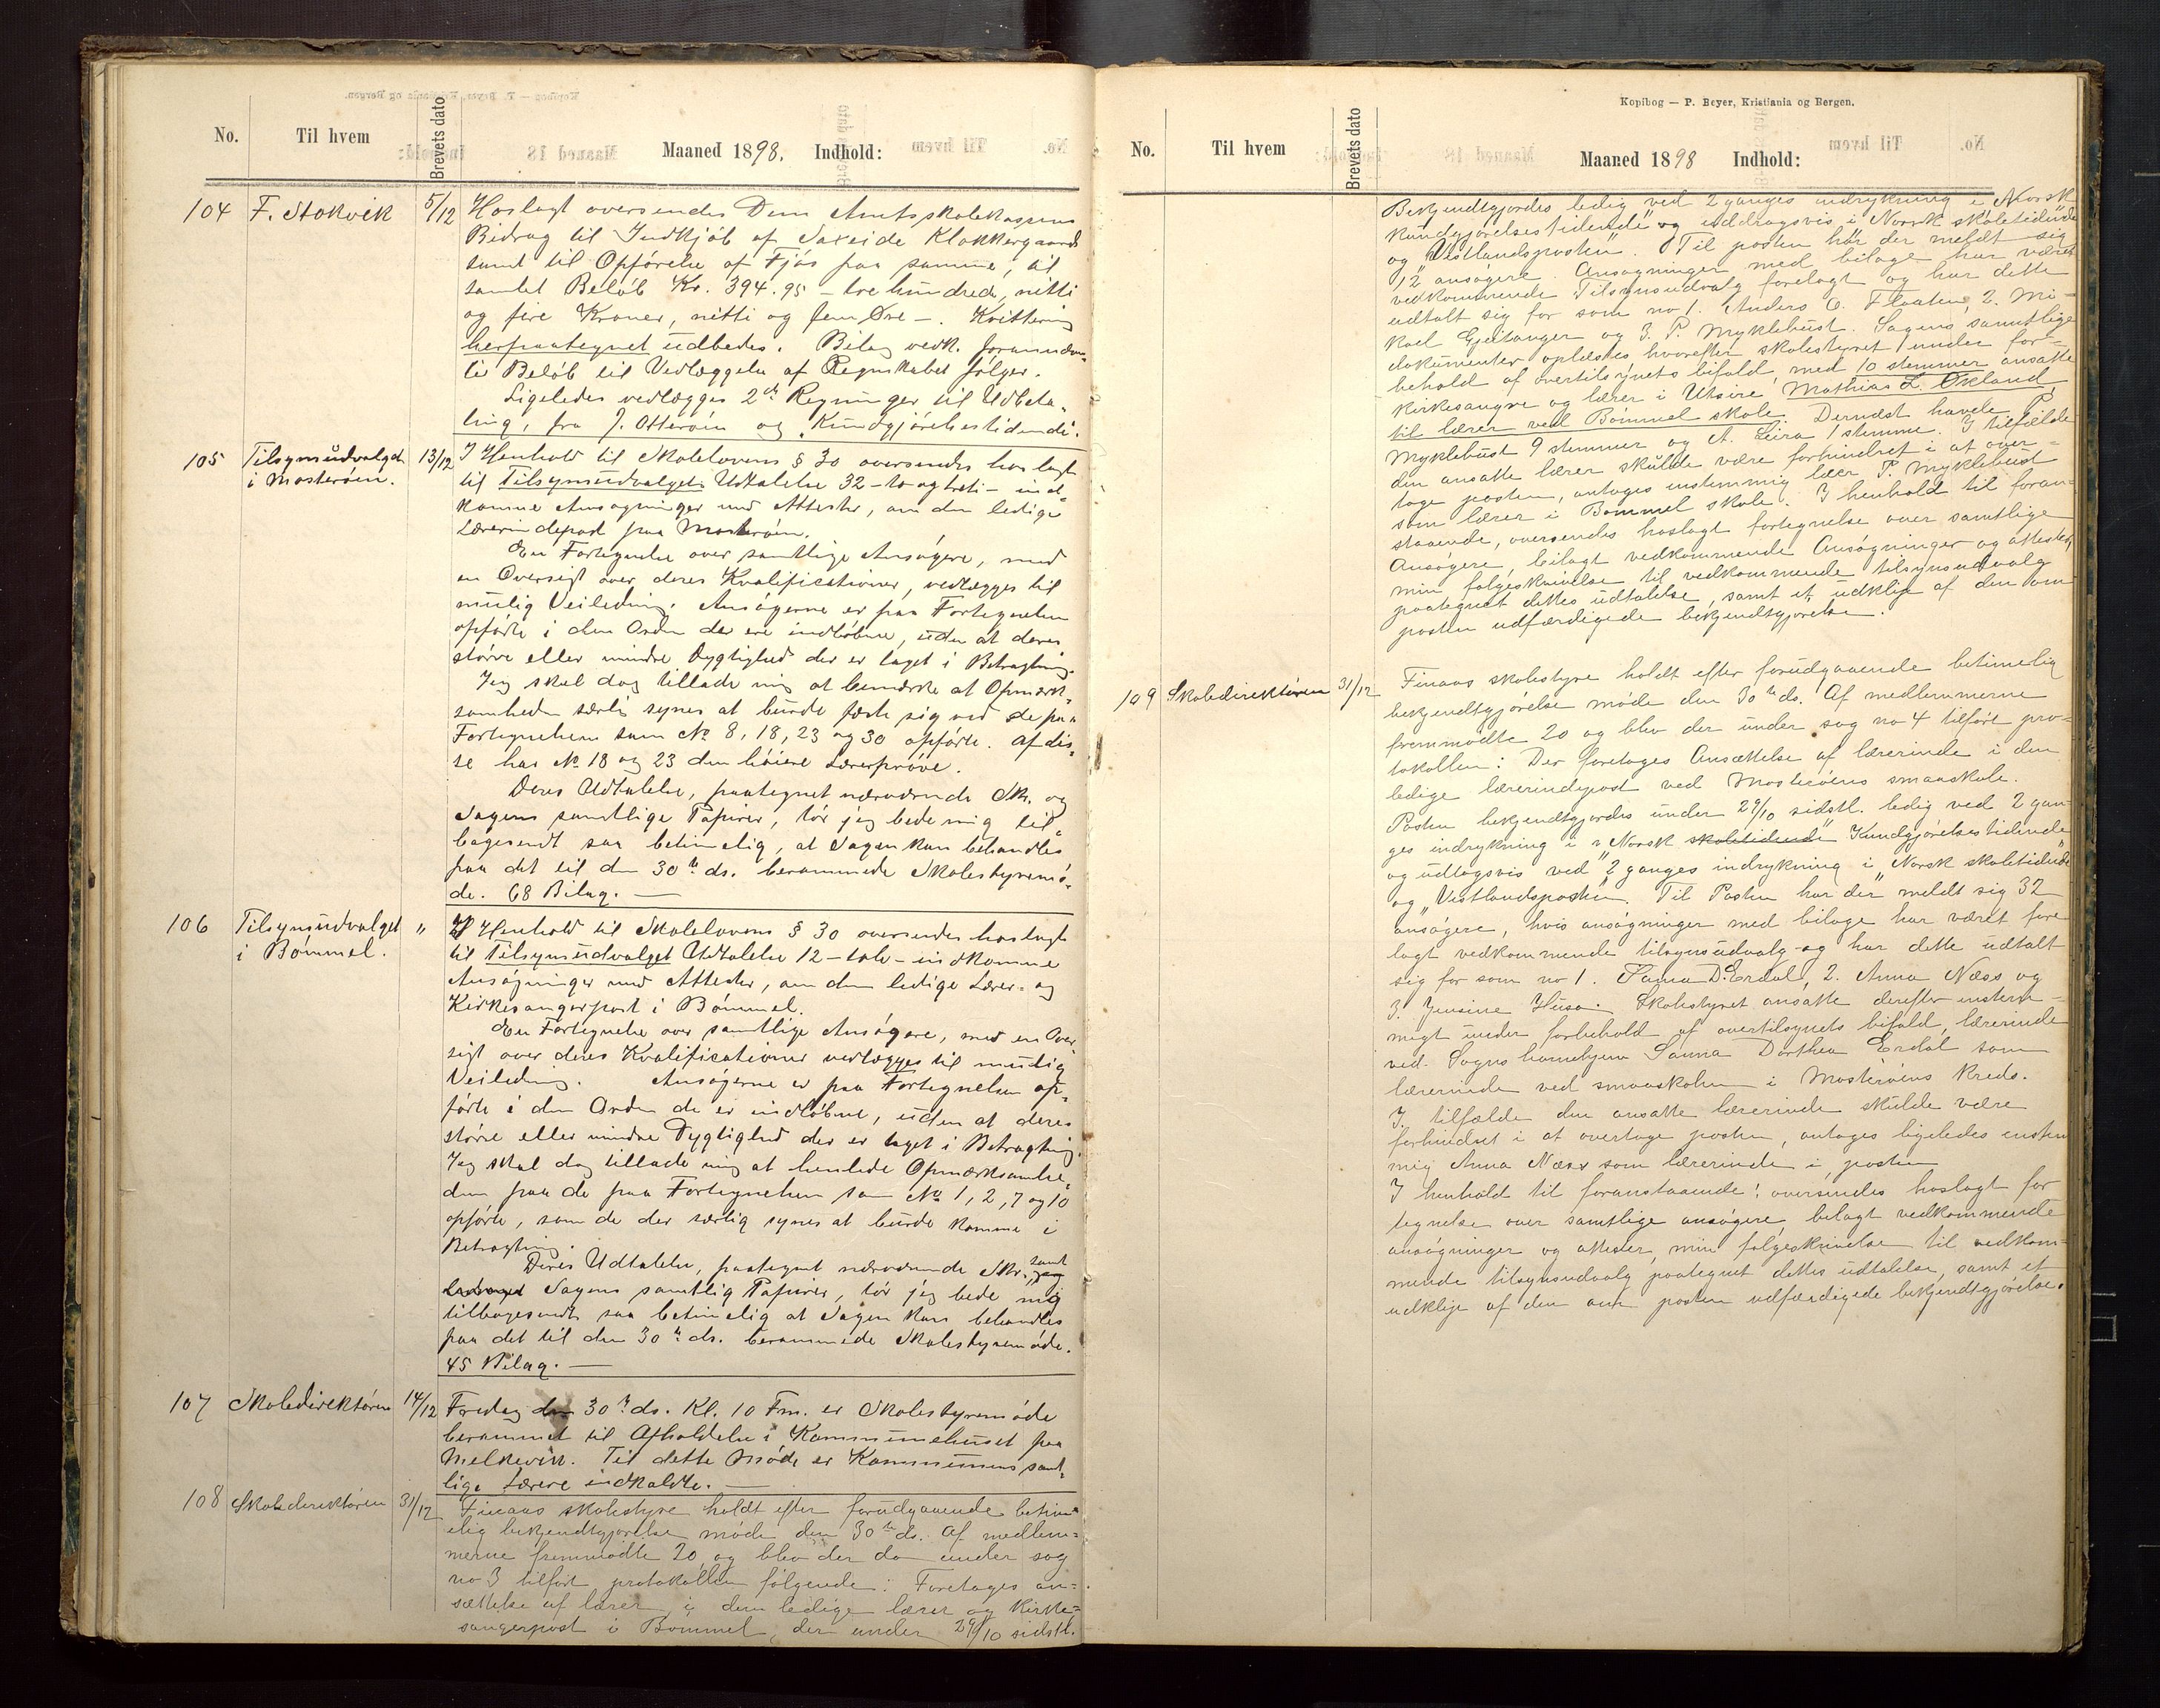 No. Til hvem Brevets dato Maaned 1898. Indhold:
104 F. Stokvik 5/12 Hoslagt oversendes Dem Amtsskolekassens
Bidrag til Indkjøb af Sæveide Klokkergaard
samt til Opførelse af Fjøs paa samme, til
samlet Beløb Kr. 394.95 – tre hundrede, nitti
og fire Kroner, nitti og fem Øre –. Kvittering
herpaategnet udbedes. Bilag vedk. forannævn-
te Beløb til Vedlæggelse af Regnskabet følger.
Ligeledes vedlægges 2de Regninger til Udbeta-
ling, fra J. Otterøin og „Kundgjørelsestidende".
105 Tilsynsudvalget i Mosterøen. 13/12 I Henhold til Skolelovens § 30 oversendes hoslagt
til Tilsynsudvalgets Udtalelse 32 – to og treti – ind-
komne Ansøgninger med Attester, om den ledige
Lærerindepost paa Mosterøen.
En Fortegnelse over samtlige Ansøgere, med
en Oversigt over deres Kvalifikationer, vedlægges til
mulig Veiledning. Ansøgerne er paa Fortegnelsen
opførte i den Orden de ere indløbne, uden at deres
større eller mindre Dygtighed der er taget i Betragtning.
Jeg skal dog tillade mig at bemærke at Opmærk-
somheden særlig synes at burde fæste sig ved de paa
Fortegnelsen som No 8, 18, 23 og 30 opførte. Af dis-
se har No 18 og 23 den høiere Lærerprøve.
Deres Udtalelse, paategnet nærværende Skr. og
Sagens samtlige Papirer, tør jeg bede mig til-
bagesendt saa betimelig, at Sagen kan behandles
paa det til den 30te ds. berammede Skolestyremø-
de. 68 Bilag. —
106 Tilsynsudvalget i Bømmel. " I Henhold til Skolelovens § 30 oversendes hoslagt
til Tilsynsudvalget Udtalelse 12 – tolv – indkomne
Ansøgninger med Attester, om den ledige Lærer- og
Kirkesangerpost i Bømmel.
En Fortegnelse over samtlige Ansøgere, med en Over-
sigt over deres Kvalificationer vedlægges til mulig
Veiledning. Ansøgerne er paa Fortegnelsen op-
førte i den Orden de er indløbne, uden at deres
større eller mindre Dygtighed der er taget i Betragtning.
Jeg skal dog tillade mig at henlede Opmærksomhe-
den paa de paa Fortegnelsen som No 1, 2, 7 og 10
opførte, som de der særlig synes at burde komme i
Betragtning.
Deres Udtalelse, paategnet nærværende Skr. samt
Sagens samtlig Papirer, tør jeg bede mig
tilbagesendt saa betimelig at Sagen kan behandles
paa det til den 30te ds. berammede Skolestyremøde.
45 Bilag. —
107 Skoledirektøren 14/12 Fredag den 30te ds. Kl. 10 Fm. er Skolestyremøde
berammet til Afholdelse i Kommunehuset paa
Melkevik. Til dette Møde er Kommunens samt-
lige Lærere indkaldte. —
108 Skoledirektøren 31/12 Finaas skolestyre holdt efter forudgaaende betim-
elig bekjendtgjørelse møde den 30te ds. Af medlem-
merne fremmødte 20 og blev der da under sag
no 3 tilført protokollen følgende: Foretages an-
sættelse af lærer i den ledige lærer og Kirke-
sangerpost i Bømmel, der under 29/10 sidstl.
Kopibog — P. Beyer, Kristiania og Bergen.
No. Til hvem Brevets dato Maaned 1898 Indhold:
Bekjendtgjordes ledig ved 2 ganges indrykning i „Norsk
kundgjørelsestidende" og uddragsvis i „Norsk skoletidende"
og „Vestlandsposten". Til posten har der meldt sig
12 ansøgere. Ansøgninger med bilage har været
vedkommende Tilsynsudvalg forelagt og har dette
udtalt sig for som no 1. Anders O. Flaaten, 2. Mi-
kael Gjeitanger og 3. P. Myklebust. Sagens samtlige
dokumenter oplæstes hvorefter skolestyret under for-
behold af overtilsynets bifald, med 10 stemmer ansatte
Kirkesangre og lærer i Utsire, Mathias L. Økland,
til lærer ved Bømmel skole. Dernæst havde P.
Myklebust 9 stemmer og A. Leira 1 stemme. I tilfælde
den ansatte lærer skulde være forhindret i at over-
tage posten, antages enstemmig lærer P. Myklebust
som lærer i Bømmel skole. I henhold til foran-
staaende, oversendes hoslagt fortegnelse over samtlige
Ansøgere, bilagt vedkommende Ansøgninger og attester,
min følgeskrivelse til vedkommende tilsynsudvalg
paategnet dettes udtalelse, samt et udklip af den om
posten udfærdigede bekjendtgjørelse.
109 Skoledirektøren 31/12 Finaas skolestyre holdt efter forudgaaende betimelig
bekjendtgjørelse møde den 30te ds. Af medlemmerne
fremmødte 20 og blev der under sag no 4 tilført pro-
tokollen: Der foretages Ansættelse af lærerinde i den
ledige lærerindepost ved Mosterøens smaaskole.
Posten bekjendtgjordes under 29/10 sidstl. ledig ved 2 gan-
ges indrykning i „Norsk skoletidende" Kundgjørelsestidende"
og udtogsvis ved 2 ganges indrykning i „Norsk skoletidende"
og „Vestlandsposten". Til Posten har der meldt sig 32
ansøgere, hvis ansøgninger med bilage har været fore
lagt vedkommende tilsynsudvalg og har dette udtalt
sig for som no 1. Sanna D. Erdal, 2. Anna Næss og
3. Jensine Husa. Skolestyret ansatte derefter enstem-
migt under forbehold af overtilsynets bifald, lærerinde
ved Sogns barnehjem Sanna Dorthea Erdal som
lærerinde ved smaaskolen i Mosterøens Kreds.
I tilfælde den ansatte lærerinde skulde være
forhindret i at overtage posten, antages ligeledes enstem
mig Anna Næss som lærerinde i posten
I henhold til foranstaaende oversendes hoslagt for
tegnelse over samtlige ansøgere, bilagt vedkommende
ansøgninger og attester, min følgeskrivelse til vedkom-
mende tilsynsudvalg paategnet dettes udtalelse, samt et
udklip af den om posten udfærdigede bekjendtgjørelse.